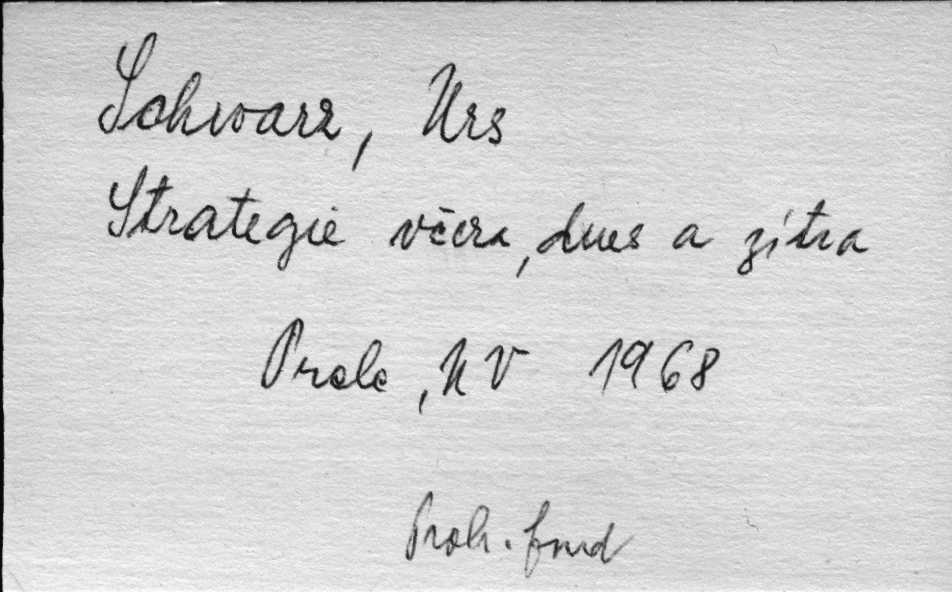 Schwarz, Urs
Strategie včera, dnes a zítra
Praha, NV 1968
Proh. fond